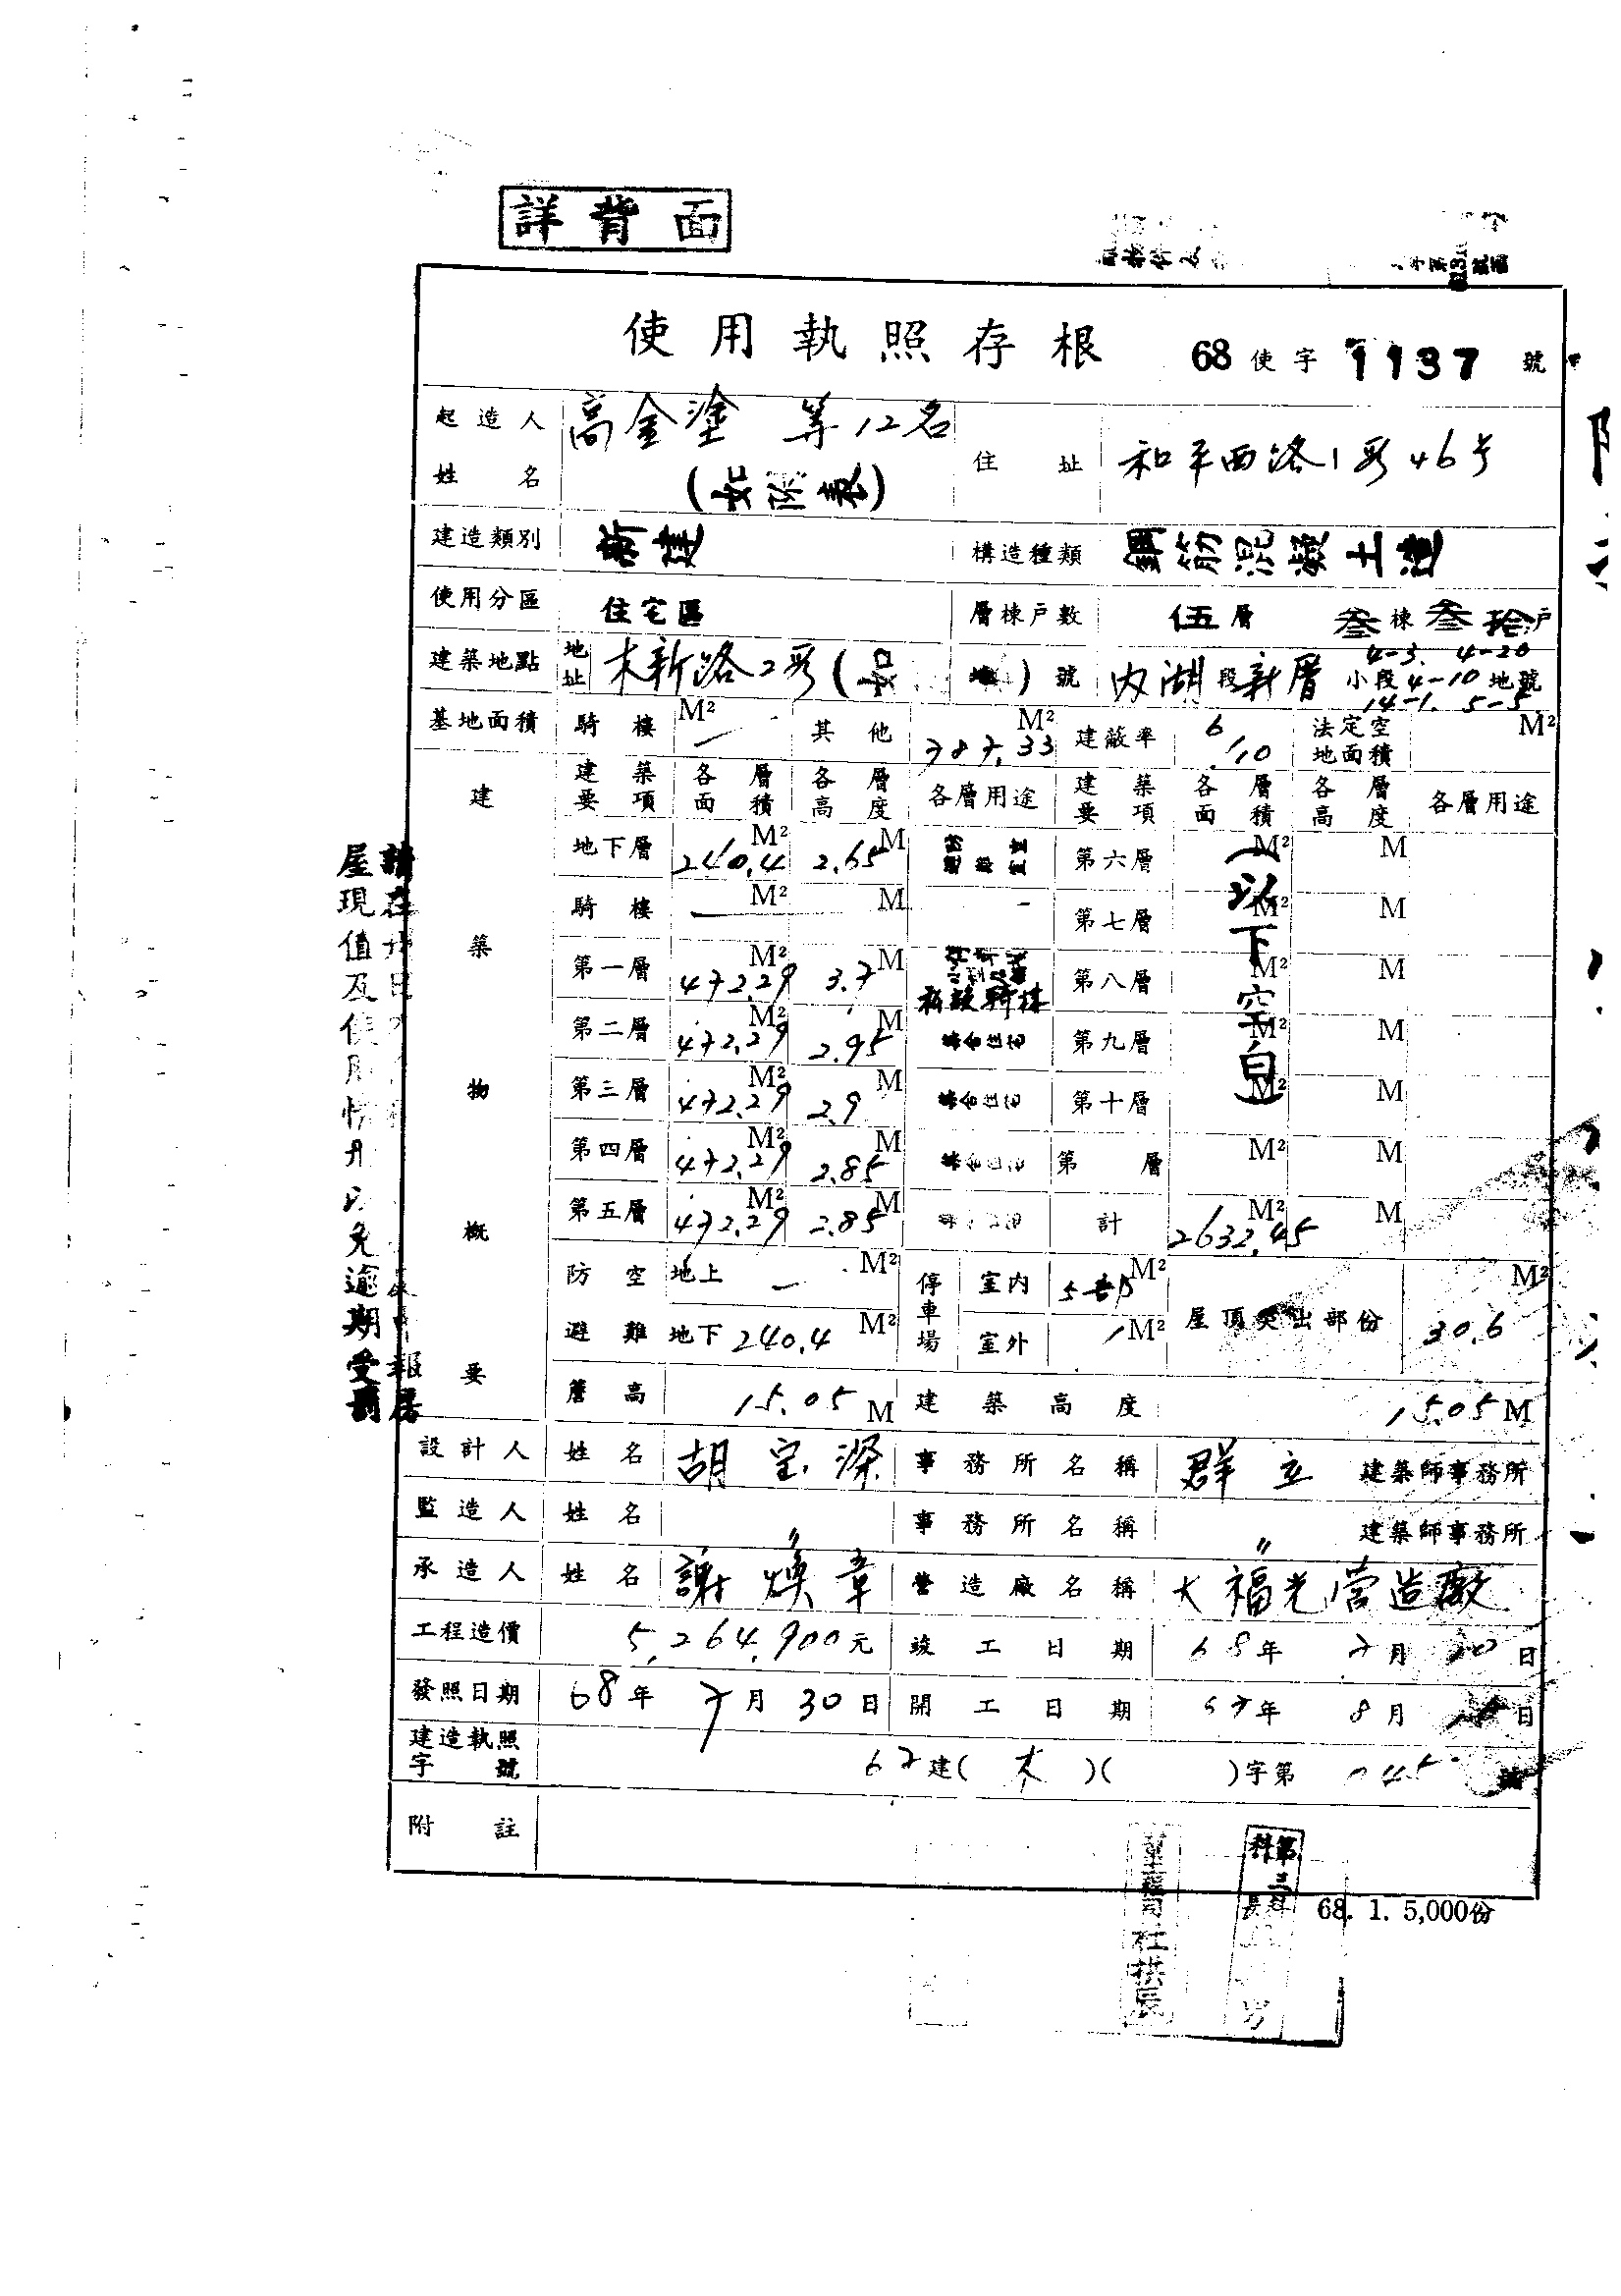 詳背面
使用執照存根 68使字1137號
起造人姓名 高金塗 等12名 (如附表) 住址 和平西路1段46号
建造類別 新建 構造種類 鋼筋混凝土造
使用分區 住宅區 層棟戶數 伍層 叁棟叁拾戶
建築地點 地址 木新路2段( ) 號 內湖段新厝小段 4-3. 4-20 4-10 14-1. 5-5 地號
基地面積 騎樓 M² — 其他 M² 787.33 建蔽率 6/10 法定空地面積 M²
建築物概要
建築要項 各層面積 各層高度 各層用途 建築要項 各層面積 各層高度 各層用途
地下層 240.4 M² 2.65 M 第六層 M² M
騎樓 — M² M - 第七層 M² M
第一層 472.29 M² 3.7 M 私設騎樓 第八層 M² M
第二層 472.29 M² 2.95 M 第九層 M² M
第三層 472.29 M² 2.9 M 第十層 M² M
第四層 472.29 M² 2.85 M 第 層 M² M
第五層 472.29 M² 2.85 M 計 2632.45 M² M
(以下空白)
防空避難 地上 — M² 地下 240.4 M² 停車場 室內 M² 室外 / M² 屋頂突出部份 30.6 M²
簷高 15.05 M 建築高度 15.05 M
設計人 姓名 胡宝 事務所名稱 群立 建築師事務所
監造人 姓名 〃 事務所名稱 〃 建築師事務所
承造人 姓名 謝煥章 營造廠名稱 大福光营造廠
工程造價 5,264,900元 竣工日期 68年7月20日
發照日期 68年7月30日 開工日期 67年8月 日
建造執照字號 67建(木)( )字第045 號
附註
68. 1. 5,000份
屋現值及使用情 免逾期受罰
第三科 科長